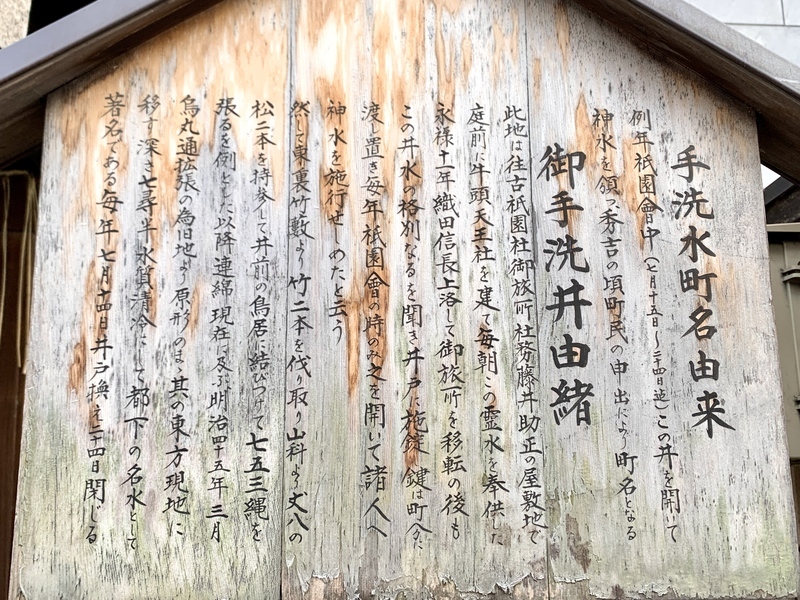 手洗水町名由来
例年祇園會中（七月十五日～二十四日迄）この井を開いて
神水を領つ秀吉の頃町民の申出により町名となる
御手洗井由緒
此地は往古祇園社御旅所社務藤井助正の屋敷地で
庭前に牛頭天王社を建て毎朝この霊水を奉供した
永禄十年織田信長上洛して御旅所を移転の後も
この井水の格別なるを聞き井戸に施錠鍵は町分に
渡し置き毎年祇園會の時のみ之を開いて諸人へ
神水を施行せしめたと云う
然して東裏竹藪より竹二本を伐り取り山科より丈八の
松二本を持参して井前の鳥居に結びつけて七五三縄を
張るを例とした以降連綿現在に及ぶ明治四十五年三月
烏丸通拡張の為旧地より原形のまゝ其の東方現地に
移す深さ七尋半水質清冷にして都下の名水として
著名である毎年七月十四日井戸換え二十四日閉じる